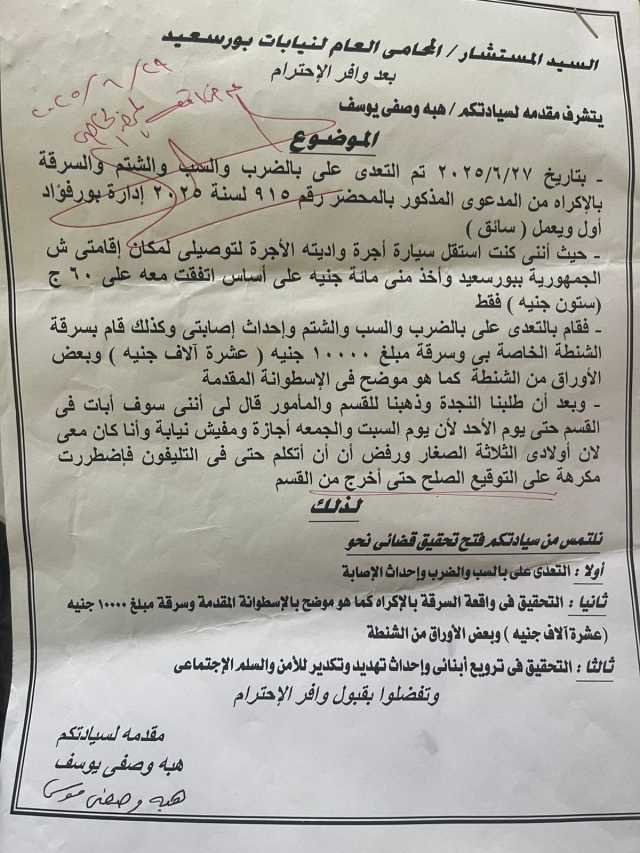 السيد المستشار / المحامى العام لنيابات بورسعيد
بعد وافر الإحترام
يتشرف مقدمه لسيادتكم / هبه وصفى يوسف
الموضوع
- بتاريخ ٢٠٢٥/٦/٢٧ تم التعدى على بالضرب والسب والشتم والسرقة
بالإكراه من المدعوى المذكور بالمحضر رقم ٩١٥ لسنة ٢٠٢٥ إدارة بورفؤاد
أول ويعمل ( سائق )
- حيث أننى كنت استقل سيارة أجرة واديته الأجرة لتوصيلى لمكان إقامتى ش
الجمهورية ببورسعيد وأخذ منى مائة جنيه على أساس اتفقت معه على ٦٠ ج
(ستون جنيه ) فقط
- فقام بالتعدى على بالضرب والسب والشتم وإحداث إصابتى وكذلك قام بسرقة
الشنطة الخاصة بى وسرقة مبلغ ١٠٠٠٠ جنيه ( عشرة آلاف جنيه ) وبعض
الأوراق من الشنطة كما هو موضح فى الإسطوانة المقدمة
- وبعد أن طلبنا النجدة وذهبنا للقسم والمأمور قال لى أننى سوف أبات فى
القسم حتى يوم الأحد لأن يوم السبت والجمعه أجازة ومفيش نيابة وأنا كان معى
لان أولادى الثلاثة الصغار ورفض أن أن أتكلم حتى فى التليفون فإضطررت
مكرهة على التوقيع الصلح حتى أخرج من القسم
لذلك
نلتمس من سيادتكم فتح تحقيق قضائى نحو
أولا : التعدى على بالسب والضرب وإحداث الإصابة
ثانيا : التحقيق فى واقعة السرقة بالإكراه كما هو موضح بالإسطوانة المقدمة وسرقة مبلغ ١٠٠٠٠ جنيه
(عشرة آلاف جنيه ) وبعض الأوراق من الشنطة
ثالثا : التحقيق فى ترويع أبنائى وإحداث تهديد وتكدير للأمن والسلم الإجتماعى
وتفضلوا بقبول وافر الإحترام
مقدمه لسيادتكم
هبه وصفى يوسف
هبه وصفى موسى